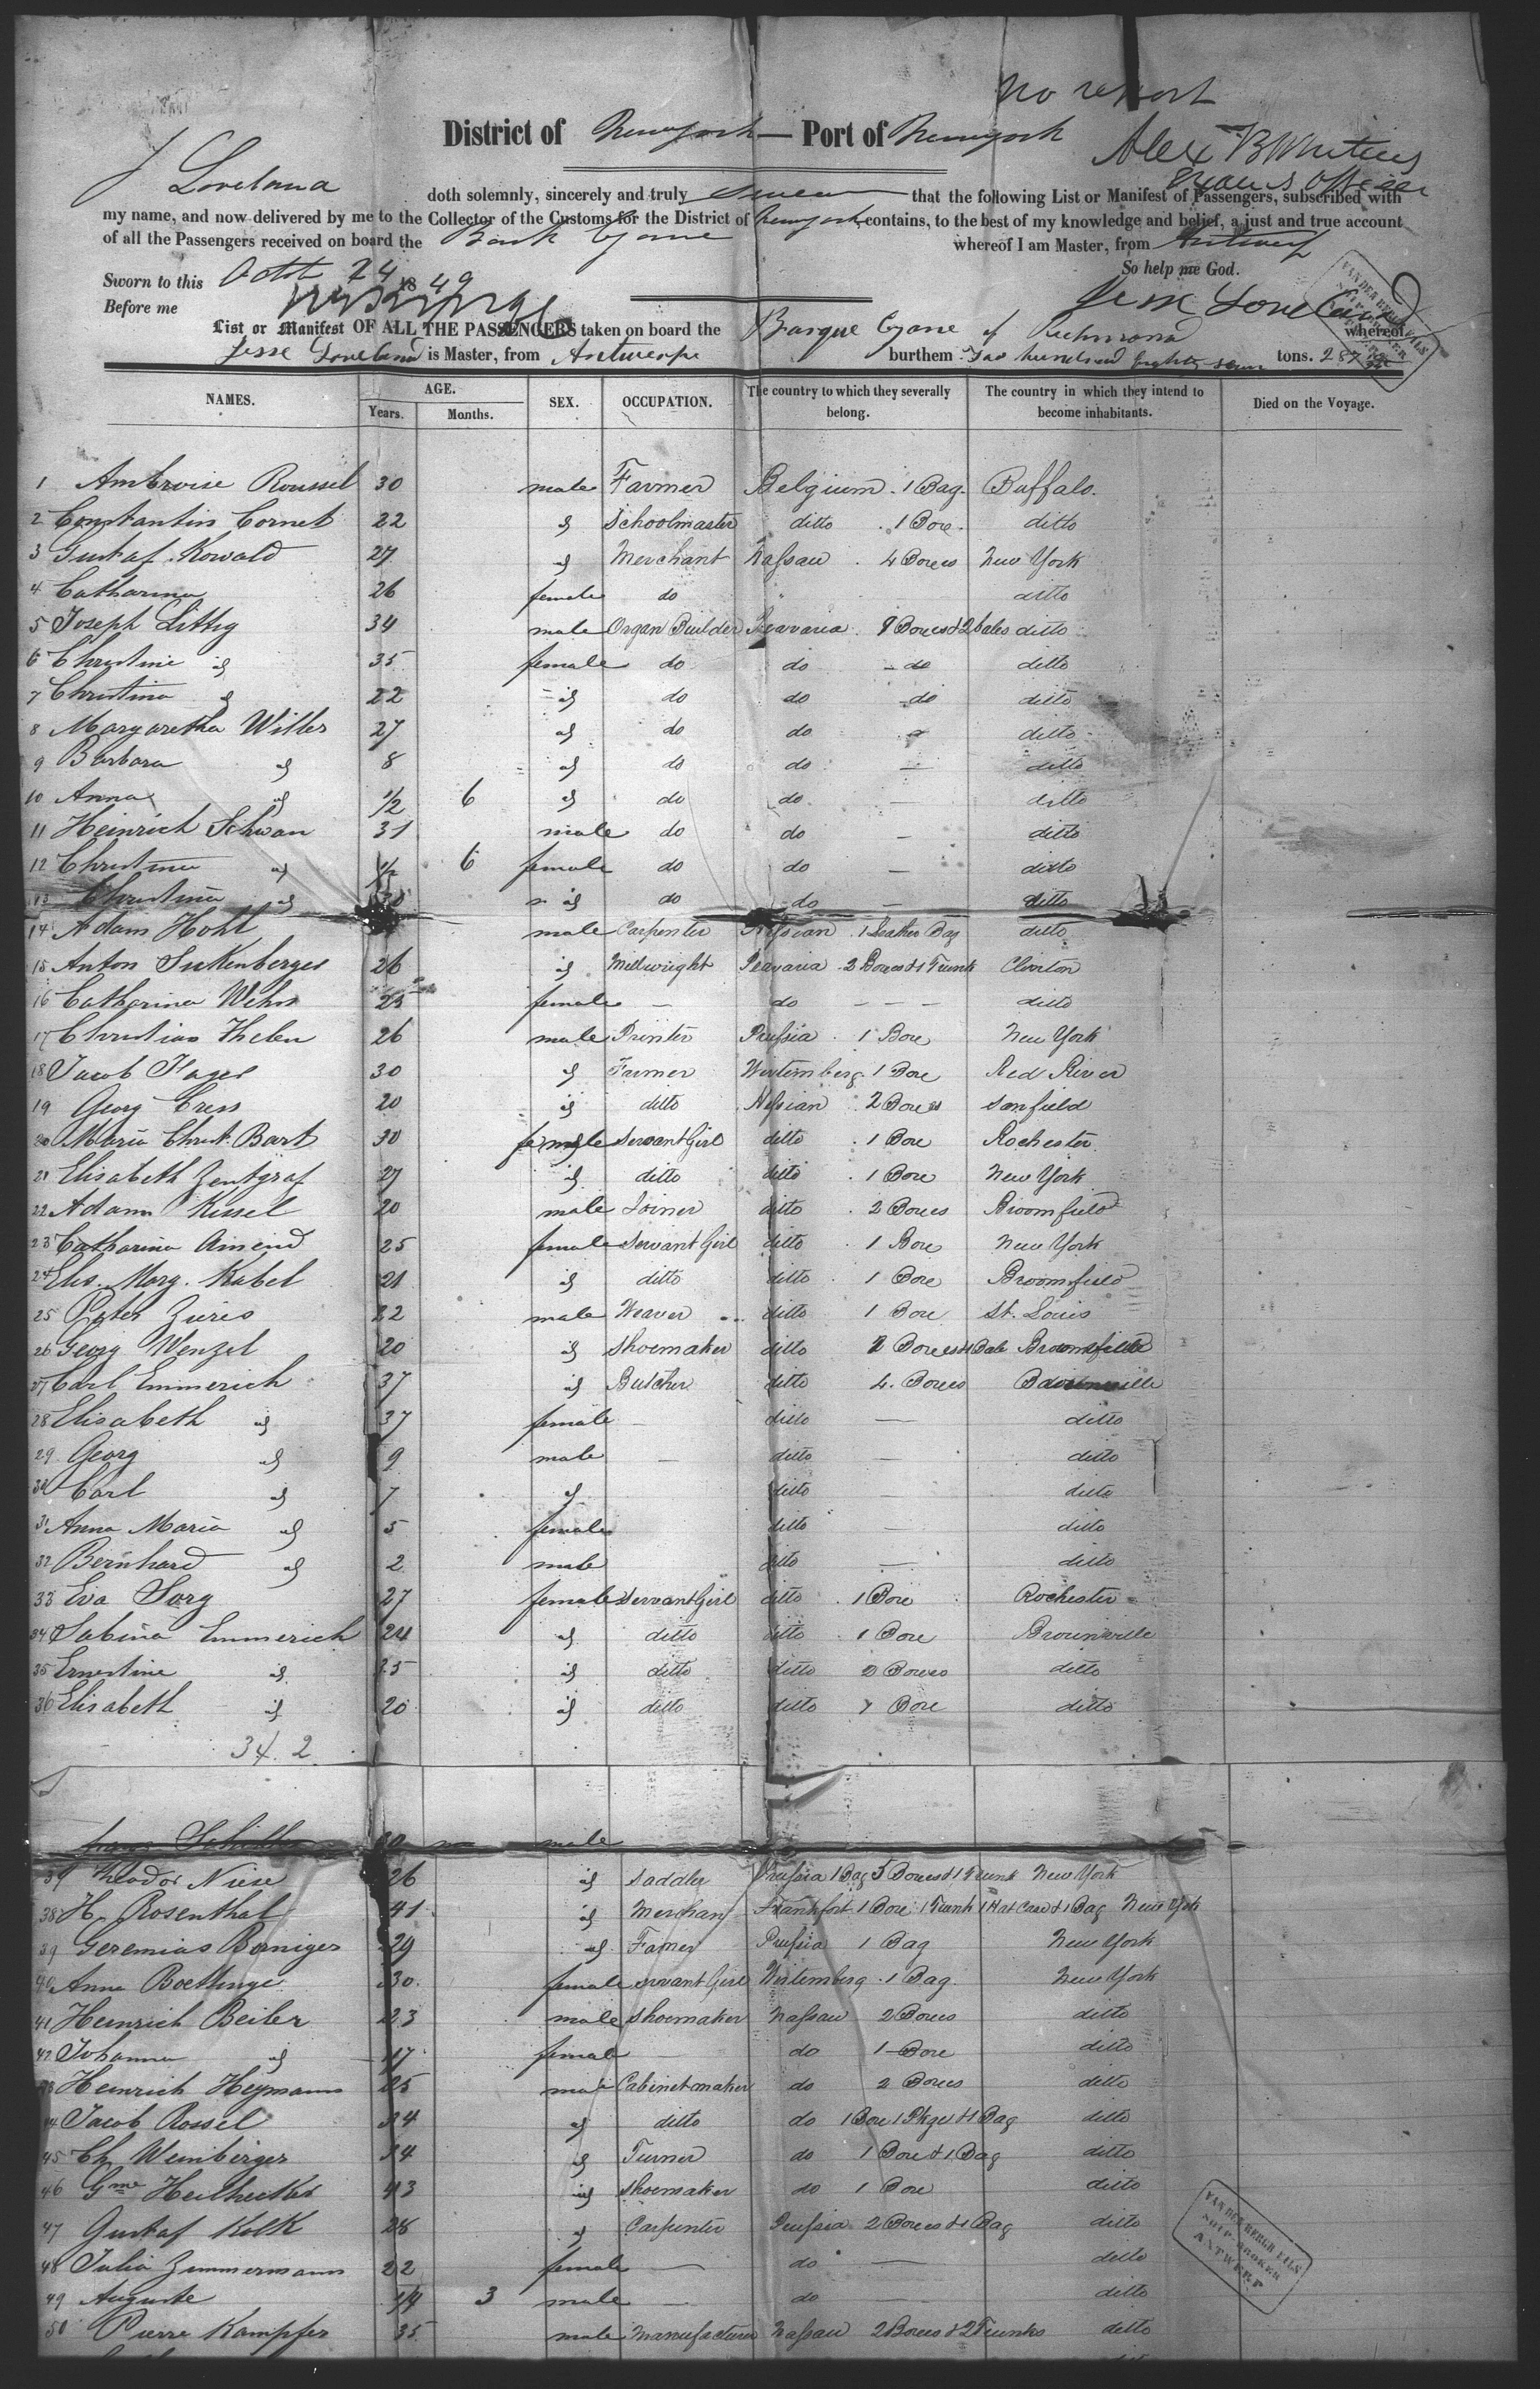 no report
District of Newyork — Port of Newyork
Alex B Whiting
J Loveland doth solemnly, sincerely and truly swear that the following List or Manifest of Passengers, subscribed with
my name, and now delivered by me to the Collector of the Customs for the District of Newyork contains, to the best of my knowledge and belief, a just and true account
of all the Passengers received on board the Bark Cyane whereof I am Master, from Antwerp
So help me God.
Sworn to this Octbr 24 1849
Before me
Jesse Loveland
List or Manifest OF ALL THE PASSENGERS taken on board the Barque Cyane of Richmond whereof
Jesse Loveland is Master, from Antwerp burthem Two hundred Eighty seven tons. 287
VAN DEN BERGH FILS SHIP-BROKER ANTWERP
NAMES. AGE. Years. Months. SEX. OCCUPATION. The country to which they severally belong. The country in which they intend to become inhabitants. Died on the Voyage.
1 Ambroise Roussel 30 male Farmer Belgium . 1 Bag. Buffalo.
2 Constantin Cornet 22 id Schoolmaster ditto . 1 Box. ditto
3 Gustaf Kowald 27 id Merchant Nassau . 4 Boxes New York
4 Catharina 26 female do " ditto
5 Joseph Littig 34 male Organ Builder Beavaria 8 Boxes & 2 bales ditto
6 Christine id 35 female do do do ditto
7 Christina id 22 id do do do ditto
8 Margaretha Willer 27 id do do ditto
9 Barbara id 8 id do do — ditto
10 Anna id 1/2 6 id do do — ditto
11 Heinrich Schwan 31 male do do — ditto
12 Christina id 1/2 6 female do do — ditto
13 Christina id 30 id do do — ditto
14 Adam Hohl male Carpenter Hessian 1 Leather Bag ditto
15 Anton Suckenberger 26 id Millwright Beavaria 2 Boxes & 1 Trunk
16 Catharina Wehn 25 female — do — — — ditto
17 Christian Thelen 26 male Printer Prussia . 1 Box New York
18 Jacob 30 id Farmer Wirtemberg 1 Box Red River
19 Georg Cress 20 id ditto Hessian 2 Boxes Sanfield
20 Maria Christ. Bart 30 female servant Girl ditto . 1 Box Rochester
21 Elisabeth Zentgraf 27 id ditto ditto . 1 Box New York
22 Adam Kissel 20 male Joiner ditto . 2 Boxes Broomfield
23 Catharina Amend 25 female servant Girl ditto . 1 Box New York
24 Elis. Marg. Kabel 21 id ditto ditto . 1 Box Broomsfield
25 Peter Zuries 22 male Weaver ditto 1 Box St. Louis
26 Georg Wenzel 20 id shoemaker ditto 2 Boxes & 1 Bale Broomsfield
27 Carl Emmerich 37 id Butcher ditto 4 Boxes
28 Elisabeth id 37 female — ditto — ditto
29 Georg id 9 male — ditto — ditto
30 Carl id 7 id ditto — ditto
31 Anna Maria id 5 female ditto — ditto
32 Bernhard id 2 male ditto — ditto
33 Eva Sorg 27 female servant Girl ditto . 1 Box Rochester
34 Sabina Emmerich 24 id ditto ditto . 1 Box Brounville
35 Ernestine id 25 id ditto ditto 2 Boxes ditto
36 Elisabeth id 20 id ditto ditto 1 Box ditto
34. 2
Schiller male
37 Theodor Niese 26 id saddler Prussia 1 Bag 5 Boxes & 1 Trunk New York
38 H. Rosenthal 41 id Merchan Frankfort 1 Box 1 Trunk 1 Hat Case & 1 Bag New York
39 Geremias Berniger 29 id Famer Prussia 1 Bag New York
40 Anna Boettinge 30 female servant Girl Wirtemberg . 1 Bag New York
41 Heinrich Beiler 23 male shoemaker Nassau 2 Boxes ditto
42 Johanna id 17 female — do 1 Box ditto
43 Heinrich Heymann 25 male Cabinetmaker do 2 Boxes ditto
44 Jacob Rossel 34 id ditto do 1 Box 1 Pkge & 1 Bag ditto
45 Ch Weinberger 34 id Turner do 1 Box & 1 Bag ditto
46 Gme Heilhecker 43 id shoemaker do 1 Box ditto
47 Gustaf Kolk 28 id Carpenter Prussia 2 Boxes & 1 Bag ditto
48 Julia Zimmermann 22 female — do — ditto
49 Auguste 1/4 3 male — do — ditto
50 Pierre Kampfer 35 male Manufacturer Nassau 2 Boxes & 2 Trunks ditto
VAN DEN BERGH FILS
SHIP-BROKER
ANTWERP